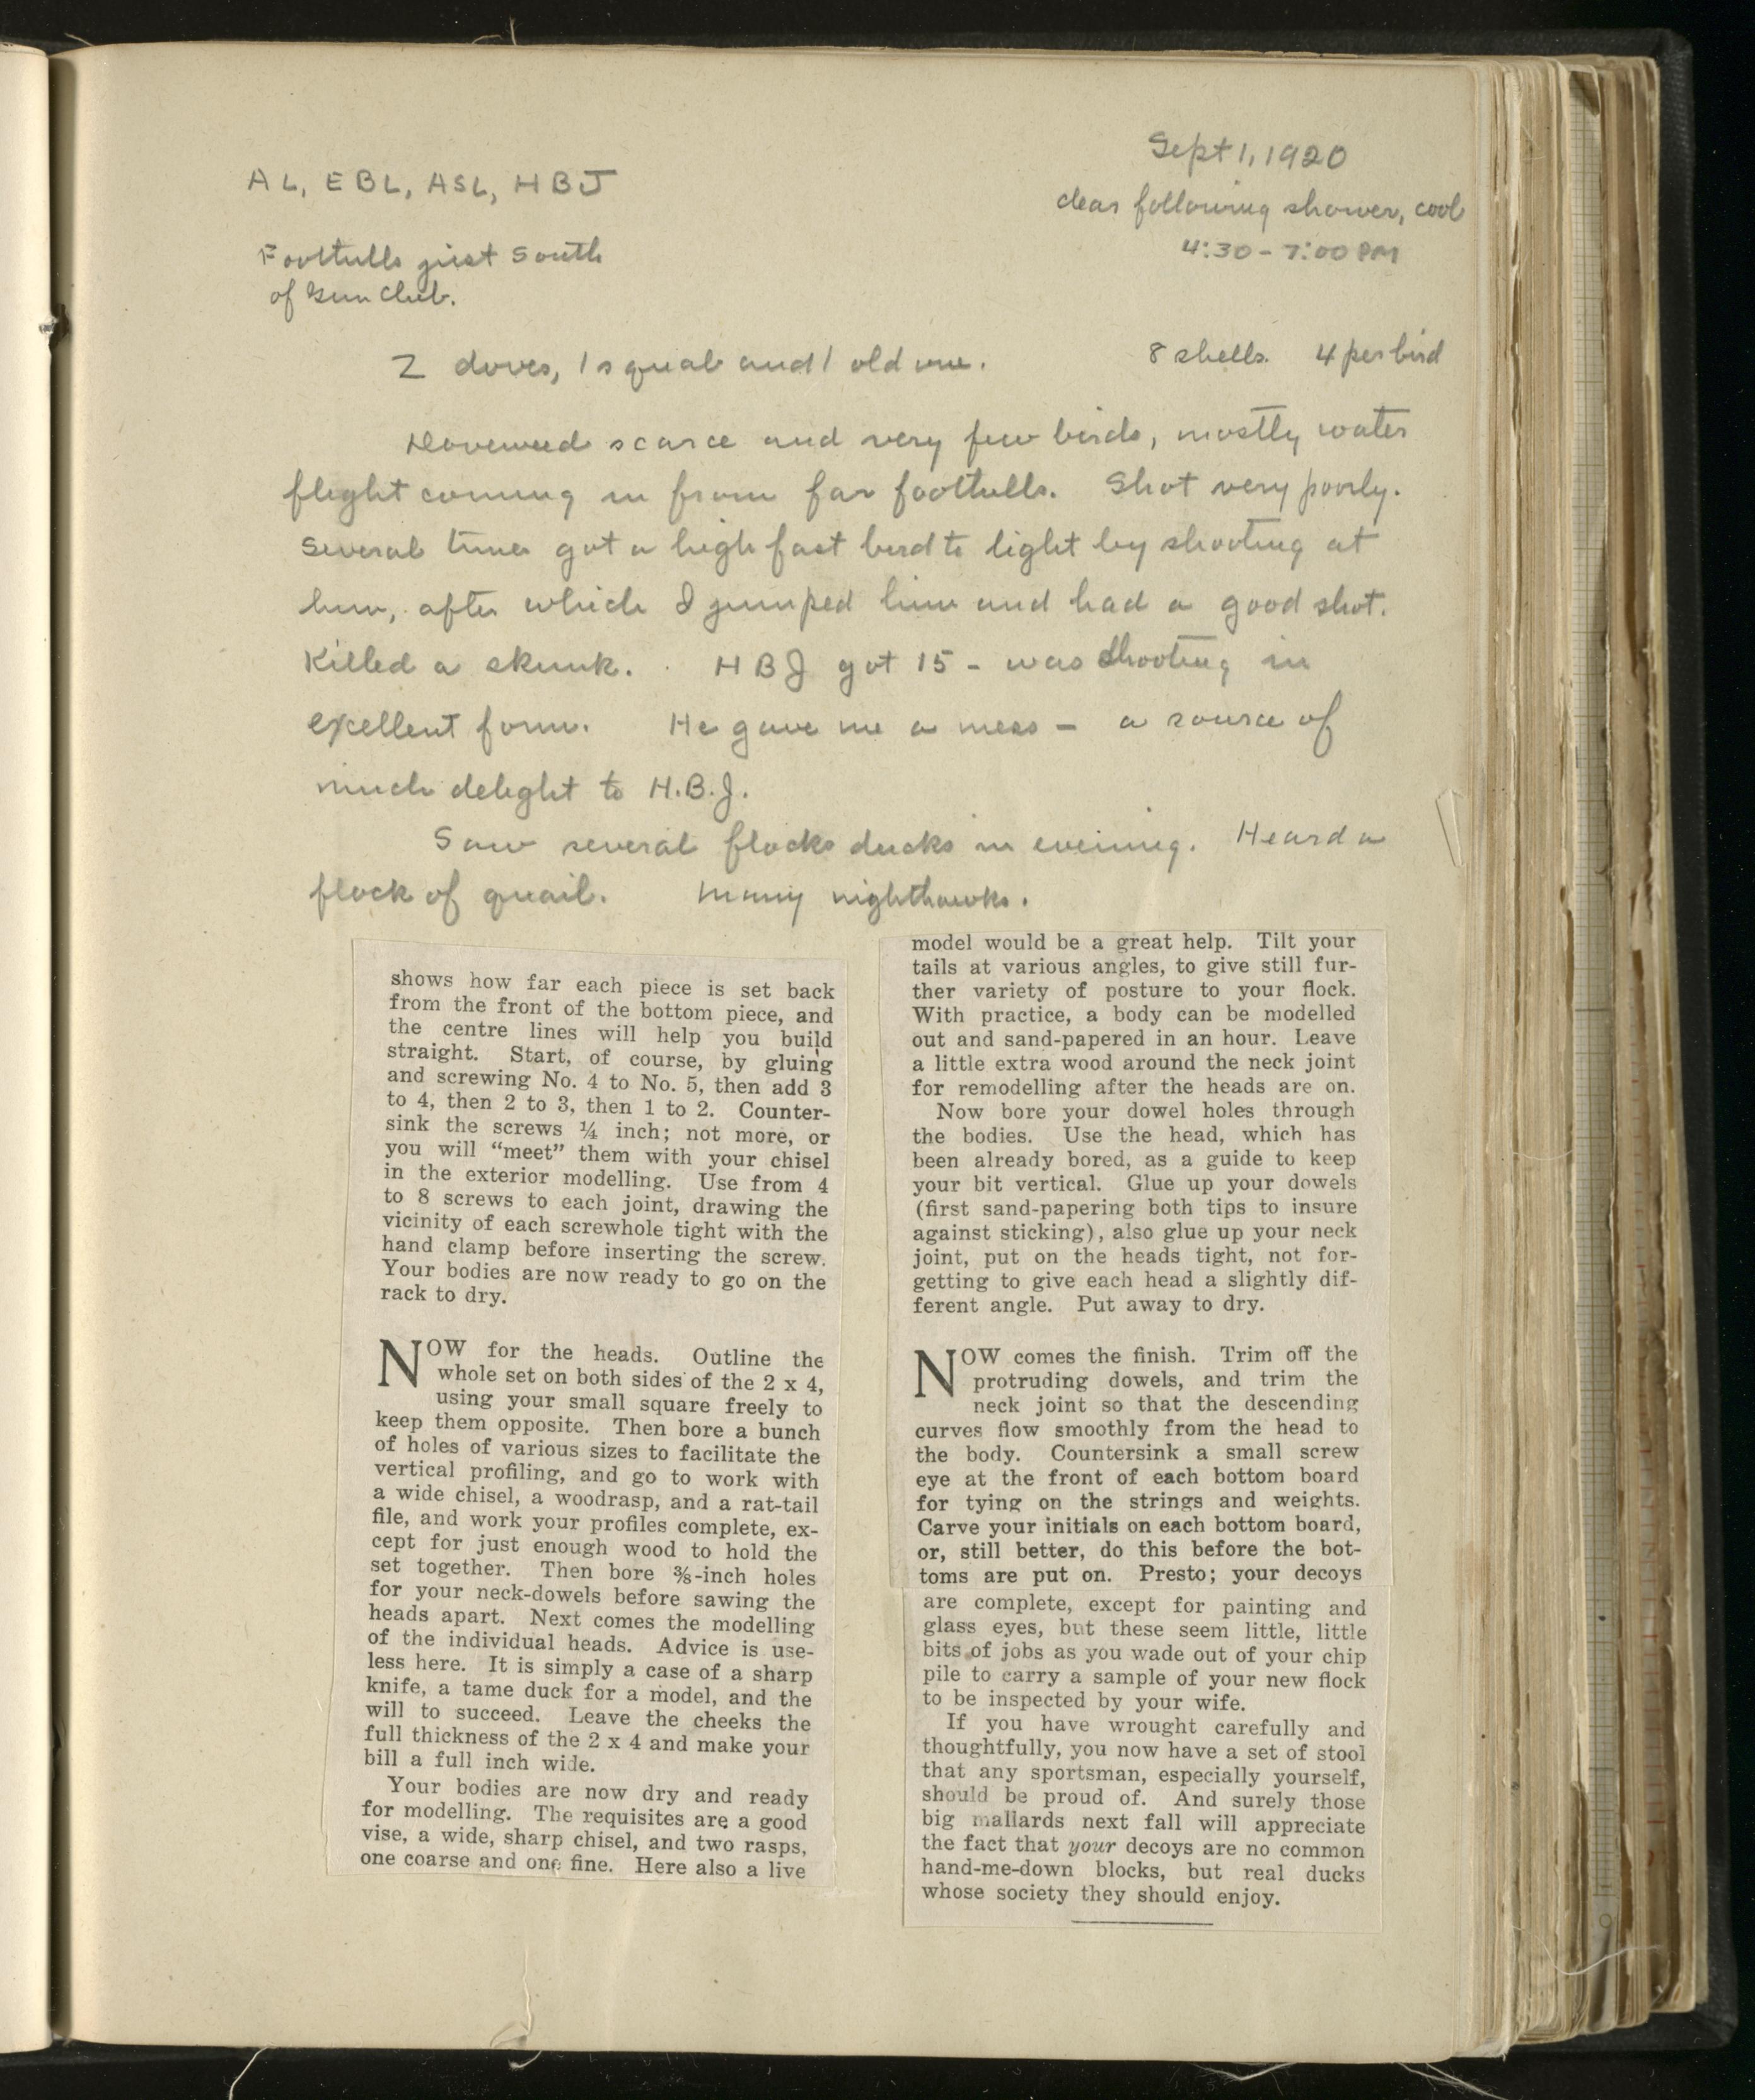 Sept 1, 1920
AL, EBL, ASL, HBJ
clear following shower, cool
4:30 - 7:00 PM
Foothills just South
of Gun Club.
2 doves, 1 squab and 1 old one.
8 shells. 4 per bird
Doveweed scarce and very few birds, mostly water
flight coming in from far foothills. Shot very poorly.
Several times got a high fast bird to light by shooting at
him, after which I jumped him and had a good shot.
Killed a skunk. HBJ got 15 - was shooting in
excellent form. He gave me a mess - a source of
much delight to H.B.J.
Saw several flocks ducks in evening. Heard a
flock of quail. Many nighthawks.
shows how far each piece is set back
from the front of the bottom piece, and
the centre lines will help you build
straight. Start, of course, by gluing
and screwing No. 4 to No. 5, then add 3
to 4, then 2 to 3, then 1 to 2. Counter-
sink the screws ¼ inch; not more, or
you will “meet” them with your chisel
in the exterior modelling. Use from 4
to 8 screws to each joint, drawing the
vicinity of each screwhole tight with the
hand clamp before inserting the screw.
Your bodies are now ready to go on the
rack to dry.
NOW for the heads. Outline the
whole set on both sides of the 2 x 4,
using your small square freely to
keep them opposite. Then bore a bunch
of holes of various sizes to facilitate the
vertical profiling, and go to work with
a wide chisel, a woodrasp, and a rat-tail
file, and work your profiles complete, ex-
cept for just enough wood to hold the
set together. Then bore ⅜-inch holes
for your neck-dowels before sawing the
heads apart. Next comes the modelling
of the individual heads. Advice is use-
less here. It is simply a case of a sharp
knife, a tame duck for a model, and the
will to succeed. Leave the cheeks the
full thickness of the 2 x 4 and make your
bill a full inch wide.
Your bodies are now dry and ready
for modelling. The requisites are a good
vise, a wide, sharp chisel, and two rasps,
one coarse and one fine. Here also a live
model would be a great help. Tilt your
tails at various angles, to give still fur-
ther variety of posture to your flock.
With practice, a body can be modelled
out and sand-papered in an hour. Leave
a little extra wood around the neck joint
for remodelling after the heads are on.
Now bore your dowel holes through
the bodies. Use the head, which has
been already bored, as a guide to keep
your bit vertical. Glue up your dowels
(first sand-papering both tips to insure
against sticking), also glue up your neck
joint, put on the heads tight, not for-
getting to give each head a slightly dif-
ferent angle. Put away to dry.
NOW comes the finish. Trim off the
protruding dowels, and trim the
neck joint so that the descending
curves flow smoothly from the head to
the body. Countersink a small screw
eye at the front of each bottom board
for tying on the strings and weights.
Carve your initials on each bottom board,
or, still better, do this before the bot-
toms are put on. Presto; your decoys
are complete, except for painting and
glass eyes, but these seem little, little
bits of jobs as you wade out of your chip
pile to carry a sample of your new flock
to be inspected by your wife.
If you have wrought carefully and
thoughtfully, you now have a set of stool
that any sportsman, especially yourself,
should be proud of. And surely those
big mallards next fall will appreciate
the fact that your decoys are no common
hand-me-down blocks, but real ducks
whose society they should enjoy.